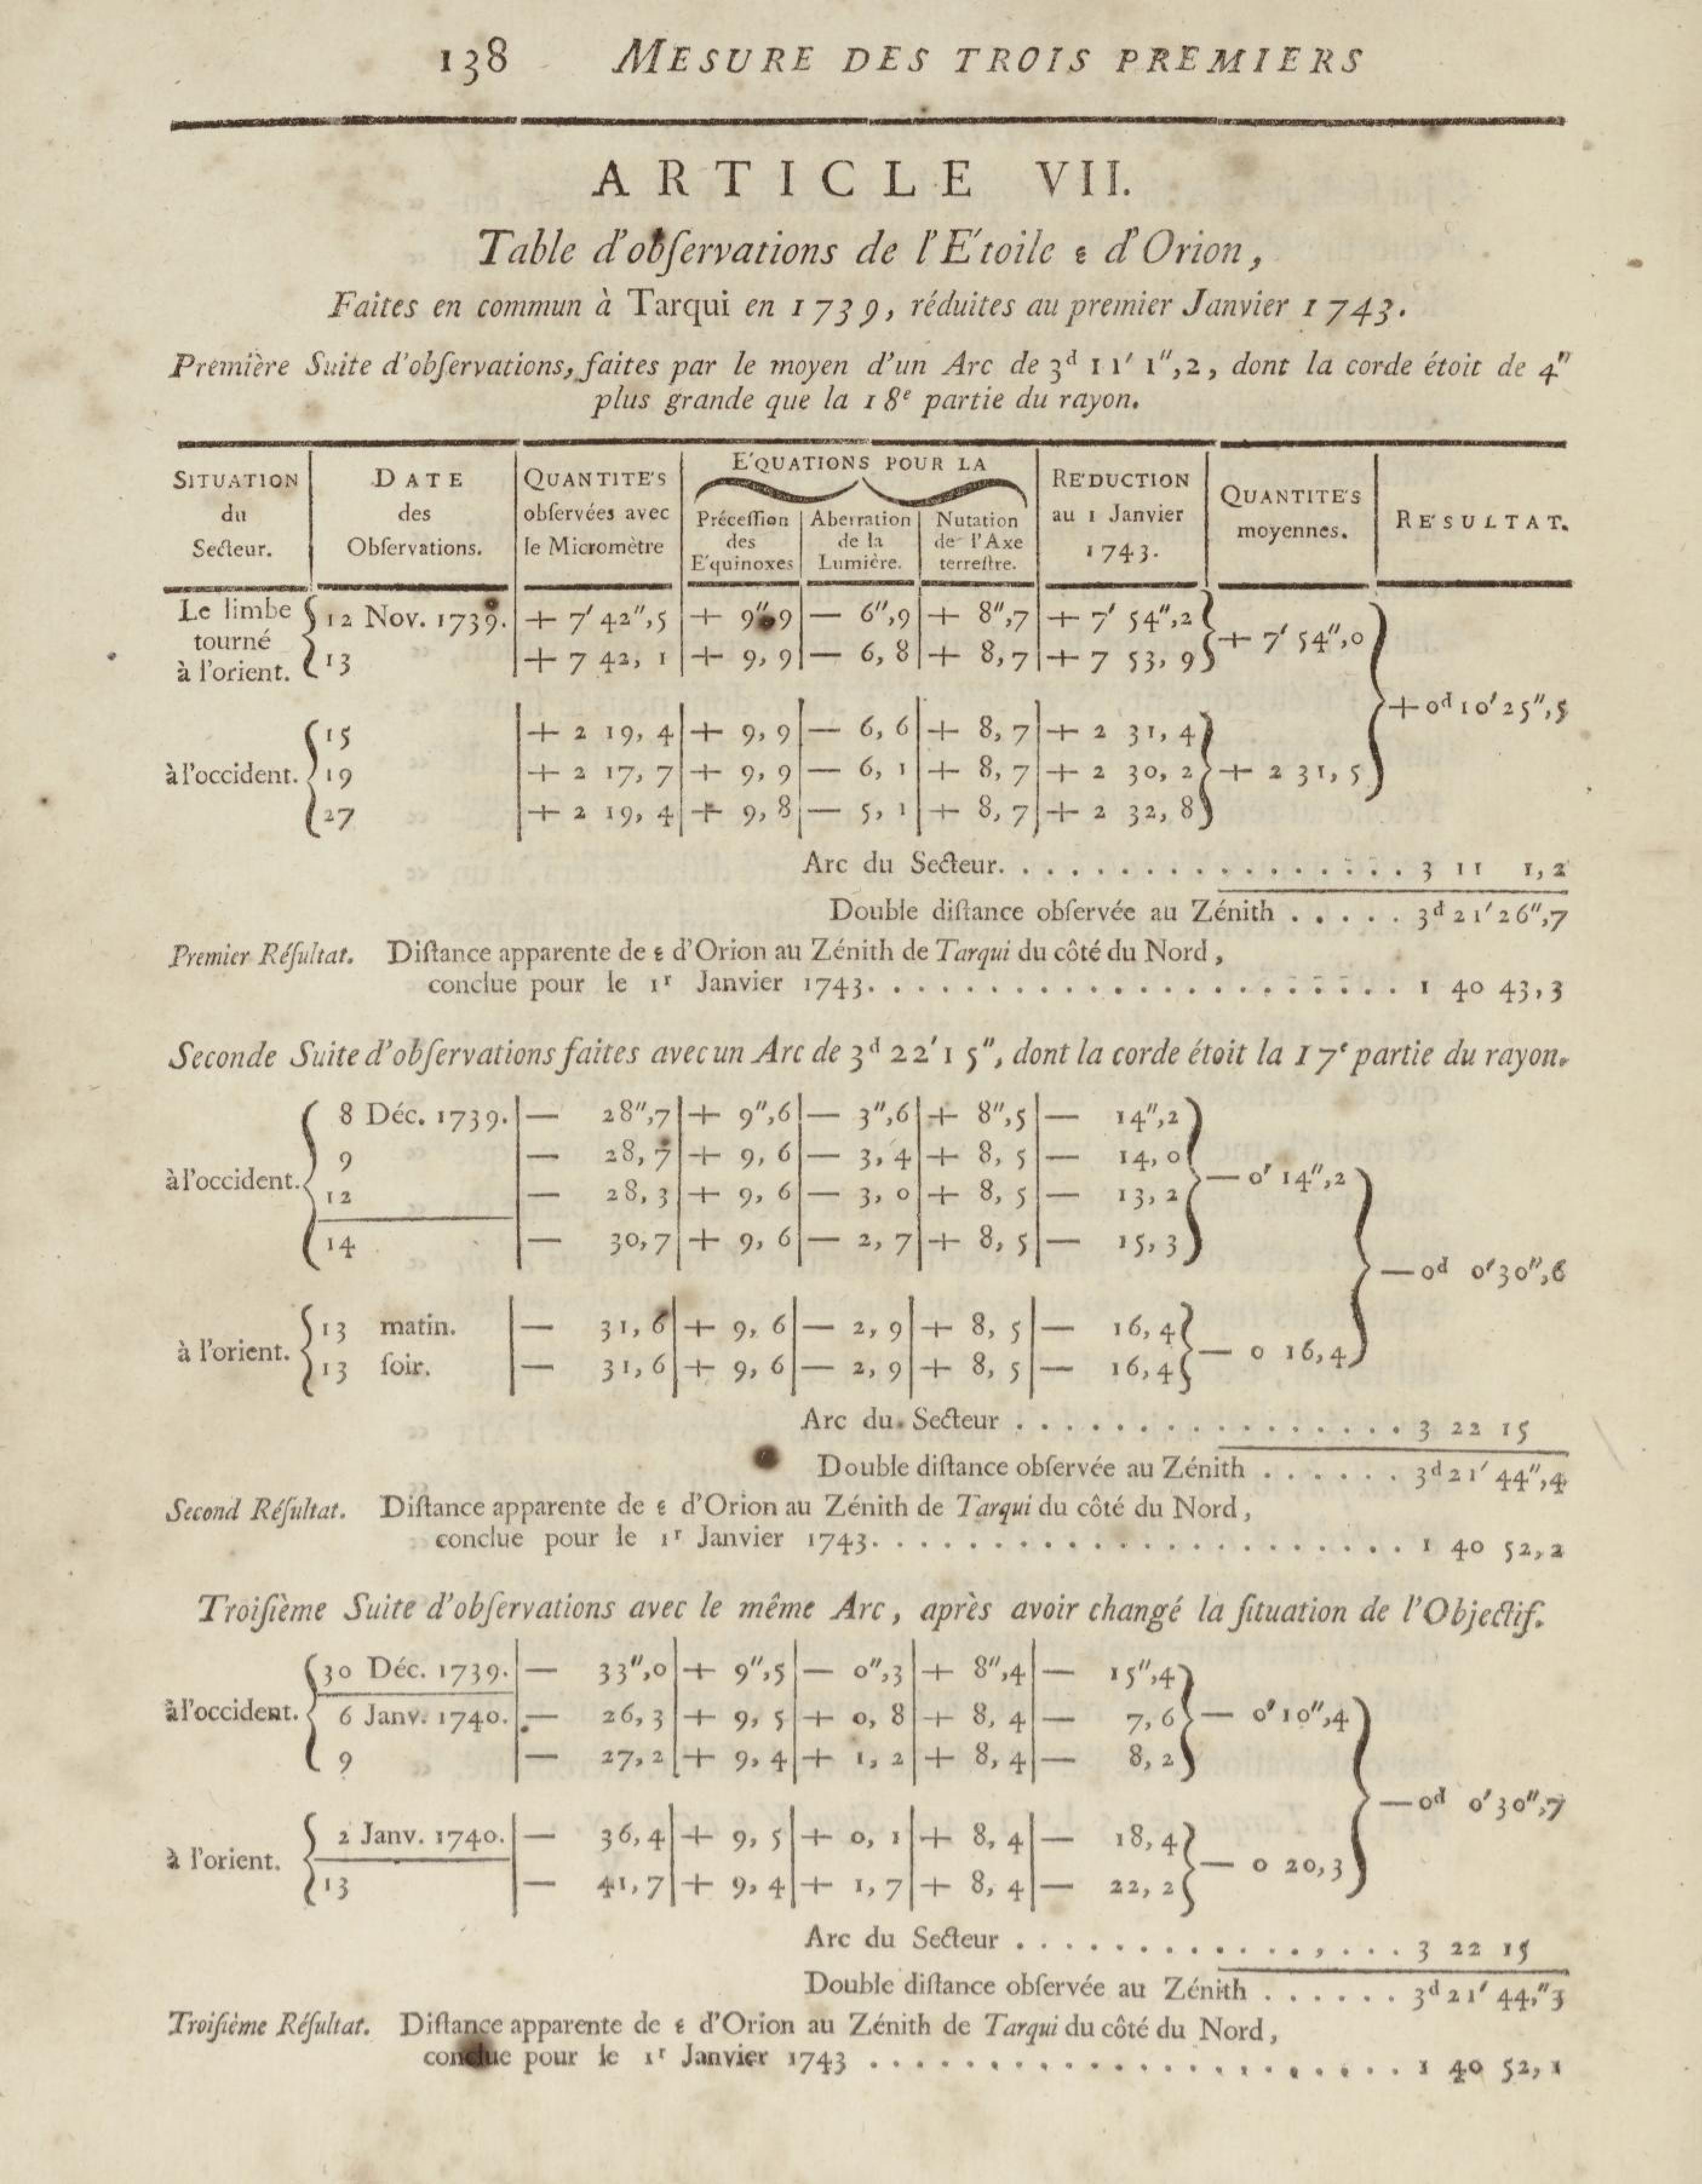 138 MESURE DES TROIS PREMIERS
ARTICLE VII.
Table d'obſervations de l'É'toile ε d'Orion,
Faites en commun à Tarqui en 1739, réduites au premier Janvier 1743.
Première Suite d'obſervations, faites par le moyen d'un Arc de 3d 11' 1",2, dont la corde étoit de 4"
plus grande que la 18e partie du rayon.
SITUATION du Secteur. | DATE des Obſervations. | QUANTITE'S obſervées avec le Micromètre | E'QUATIONS POUR LA Préceſſion des E'quinoxes | Aberration de la Lumière. | Nutation de l'Axe terreſtre. | RE'DUCTION au 1 Janvier 1743. | QUANTITE'S moyennes. | RE'SULTAT.
Le limbe tourné à l'orient. { 12 Nov. 1739. | + 7' 42",5 | + 9",9 | — 6",9 | + 8",7 | + 7' 54",2 } + 7' 54",0
13 | + 7 42, 1 | + 9, 9 | — 6, 8 | + 8, 7 | + 7 53, 9
} + 0d 10' 25",5
à l'occident. { 15 | + 2 19, 4 | + 9, 9 | — 6, 6 | + 8, 7 | + 2 31, 4
19 | + 2 17, 7 | + 9, 9 | — 6, 1 | + 8, 7 | + 2 30, 2 } + 2 31, 5
27 | + 2 19, 4 | + 9, 8 | — 5, 1 | + 8, 7 | + 2 32, 8
Arc du Secteur. . . . . . . . . . . . . . . . . 3 11 1, 2
Double diſtance obſervée au Zénith . . . . . 3d 21' 26",7
Premier Réſultat. Diſtance apparente de ε d'Orion au Zénith de Tarqui du côté du Nord,
conclue pour le 1r Janvier 1743. . . . . . . . . . . . . . . . . . . . . . 1 40 43, 3
Seconde Suite d'obſervations faites avec un Arc de 3d 22' 15", dont la corde étoit la 17e partie du rayon.
à l'occident. { 8 Déc. 1739. | — 28",7 | + 9",6 | — 3",6 | + 8",5 | — 14",2
9 | — 28, 7 | + 9, 6 | — 3, 4 | + 8, 5 | — 14, 0
12 | — 28, 3 | + 9, 6 | — 3, 0 | + 8, 5 | — 13, 2 } — 0' 14",2
14 | — 30, 7 | + 9, 6 | — 2, 7 | + 8, 5 | — 15, 3
} — 0d 0' 30",6
à l'orient. { 13 matin. | — 31, 6 | + 9, 6 | — 2, 9 | + 8, 5 | — 16, 4 } — 0 16, 4
13 ſoir. | — 31, 6 | + 9, 6 | — 2, 9 | + 8, 5 | — 16, 4
Arc du Secteur . . . . . . . . . . . . . . . . 3 22 15
Double diſtance obſervée au Zénith . . . . . . 3d 21' 44",4
Second Réſultat. Diſtance apparente de ε d'Orion au Zénith de Tarqui du côté du Nord,
conclue pour le 1r Janvier 1743. . . . . . . . . . . . . . . . . . . . . . 1 40 52, 2
Troiſième Suite d'obſervations avec le même Arc, après avoir changé la ſituation de l'Objectif.
à l'occident. { 30 Déc. 1739. | — 33",0 | + 9",5 | — 0",3 | + 8",4 | — 15",4
6 Janv. 1740. | — 26, 3 | + 9, 5 | + 0, 8 | + 8, 4 | — 7, 6 } — 0' 10",4
9 | — 27, 2 | + 9, 4 | + 1, 2 | + 8, 4 | — 8, 2
} — 0d 0' 30",7
à l'orient. { 2 Janv. 1740. | — 36, 4 | + 9, 5 | + 0, 1 | + 8, 4 | — 18, 4 } — 0 20, 3
13 | — 41, 7 | + 9, 4 | + 1, 7 | + 8, 4 | — 22, 2
Arc du Secteur . . . . . . . . . . . . . . . . 3 22 15
Double diſtance obſervée au Zénith . . . . . . 3d 21' 44,"3
Troiſième Réſultat. Diſtance apparente de ε d'Orion au Zénith de Tarqui du côté du Nord,
conclue pour le 1r Janvier 1743 . . . . . . . . . . . . . . . . . . . . . . 1 40 52, 1